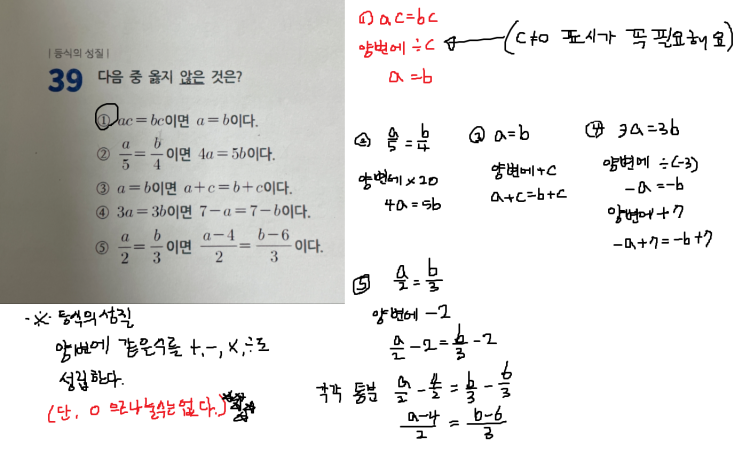 | 등식의 성질 |
39 다음 중 옳지 않은 것은?
① ac=bc이면 a=b이다.
② a/5=b/4이면 4a=5b이다.
③ a=b이면 a+c=b+c이다.
④ 3a=3b이면 7-a=7-b이다.
⑤ a/2=b/3이면 (a-4)/2=(b-6)/3이다.
※ 등식의 성질
양변에 같은수를 +,-,×,÷도
성립한다.
(단, 0으로 나눌수는 없다.)
(1) ac=bc
양변에 ÷c ← (c≠0 표시가 꼭 필요해요)
a=b
② a/5=b/4
양변에 ×20
4a=5b
③ a=b
양변에 +c
a+c=b+c
④ 3a=3b
양변에 ÷(-3)
-a=-b
양변에 +7
-a+7=-b+7
⑤ a/2=b/3
양변에 -2
a/2-2=b/3-2
각각 통분 a/2-4/2=b/3-6/3
(a-4)/2=(b-6)/3